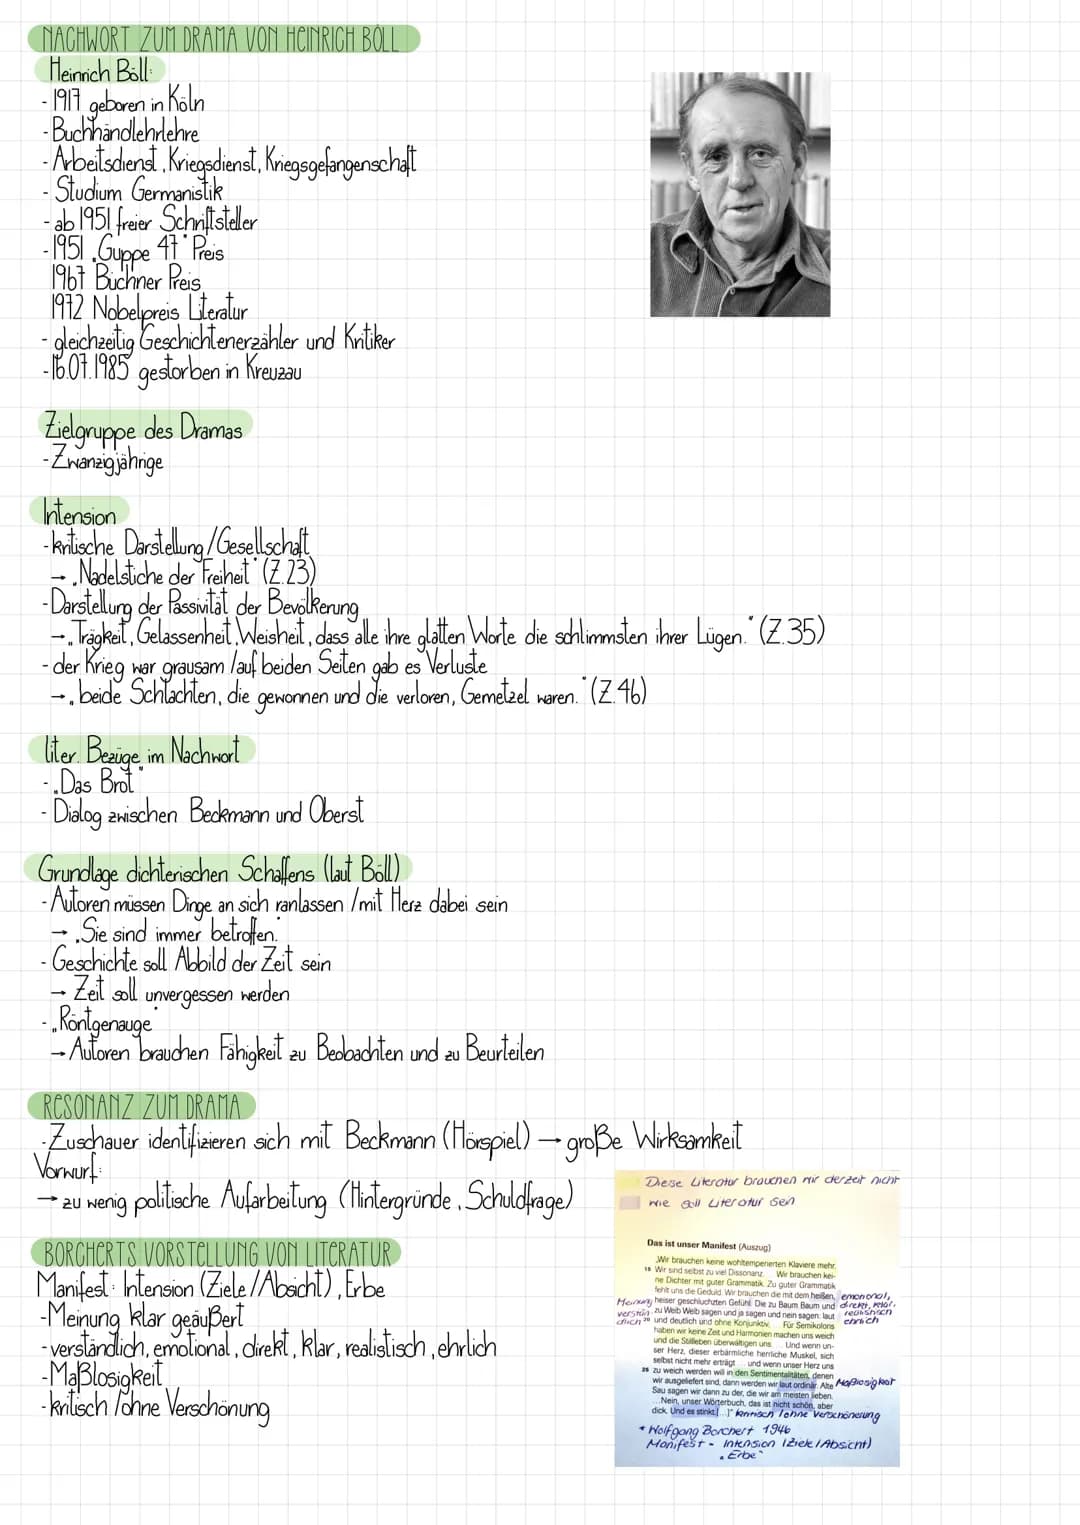 NACHWORT ZUM DRAMA VON HEINRICH BÖLL
Heinrich Böll:
- 1917 geboren in Köln
- Buchhändlehrlehre
- Arbeitsdienst, Kriegsdienst, Kriegsgefangenschaft
- Studium Germanistik
- ab 1951 freier Schriftsteller
- 1951 „Guppe 47" Preis
1967 Büchner Preis
1972 Nobelpreis Literatur
- gleichzeitig Geschichtenerzähler und Kritiker
- 16.07.1985 gestorben in Kreuzau
Zielgruppe des Dramas
- Zwanzigjährige
Intension
- kritische Darstellung/Gesellschaft
→ „Nadelstiche der Freiheit" (Z.23)
- Darstellung der Passivität der Bevölkerung
→ „Trägkeit, Gelassenheit, Weisheit, dass alle ihre glatten Worte die schlimmsten ihrer Lügen." (Z.35)
- der Krieg war grausam /auf beiden Seiten gab es Verluste
→ „beide Schlachten, die gewonnen und die verloren, Gemetzel waren." (Z.46)
liter. Bezüge im Nachwort
- „Das Brot"
- Dialog zwischen Beckmann und Oberst
Grundlage dichterischen Schaffens (laut Böll)
- Autoren müssen Dinge an sich ranlassen /mit Herz dabei sein
→ „Sie sind immer betroffen."
- Geschichte soll Abbild der Zeit sein
→ Zeit soll unvergessen werden
- „Röntgenauge"
→ Autoren brauchen Fähigkeit zu Beobachten und zu Beurteilen
RESONANZ ZUM DRAMA
- Zuschauer identifizieren sich mit Beckmann (Hörspiel) → große Wirksamkeit
Vorwurf:
→ zu wenig politische Aufarbeitung (Hintergründe, Schuldfrage)
BORCHERTS VORSTELLUNG VON LITERATUR
Manifest: Intension (Ziele/Absicht), Erbe
- Meinung klar geäußert
- verständlich, emotional, direkt, klar, realistisch, ehrlich
- Maßlosigkeit
- kritisch /ohne Verschönung
Diese Literatur brauchen wir derzeit nicht
wie soll Literatur sein
Das ist unser Manifest (Auszug)
Wir brauchen keine wohltemperierten Klaviere mehr.
15 Wir sind selbst zu viel Dissonanz. Wir brauchen kei-
ne Dichter mit guter Grammatik. Zu guter Grammatik
fehlt uns die Geduld. Wir brauchen die mit dem heißen, emotional,
Meinung heiser geschluchzten Gefühl. Die zu Baum Baum und direkt, klar,
verstän zu Weib Weib sagen und ja sagen und nein sagen: laut realistisch
dlich 20 und deutlich und ohne Konjunktiv. Für Semikolons ehrlich
haben wir keine Zeit und Harmonien machen uns weich
und die Stilleben überwältigen uns Und wenn un-
ser Herz, dieser erbärmliche herrliche Muskel, sich
selbst nicht mehr erträgt und wenn unser Herz uns
25 zu weich werden will in den Sentimentalitäten, denen
wir ausgeliefert sind, dann werden wir laut ordinär. Alte Maßlosigkeit
Sau sagen wir dann zu der, die wir am meisten lieben.
Nein, unser Wörterbuch, das ist nicht schön, aber
dick. Und es stinkt. [...]" kritisch /ohne Verschönerung
* Wolfgang Borchert 1946
Manifest - Intension (Ziele/Absicht)
„Erbe"